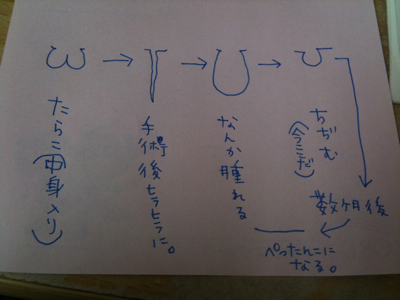 たらこ(中身入り)
手術後ヒラヒラに。
なんか腫れる
ちぢむ
(今ここだ)
数ヶ月後
ぺったんこに
なる。